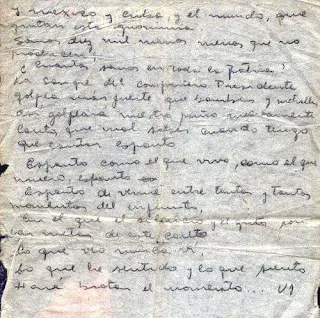 Y mexico y cuba, y el mundo, que
gritan esta ignominia
Somos diez mil manos menos que no
producen!
¿Cuantos somos en toda la Patria?
La sangre del compañero Presidente
golpea mas fuerte que bombas y metralla
asi golpeara nuestro puño nuevamente
Canto que mal sales cuando tengo
que cantar espanto
Espanto como el que vivo, como el que
muero, espanto
Espanto de verme entre tantos y tantos
momentos del infinito,
En el que el silencio y el grito son
las metas de este canto
Lo que veo nunca vi,
Lo que he sentido y lo que siento
Hara brotar el momento...